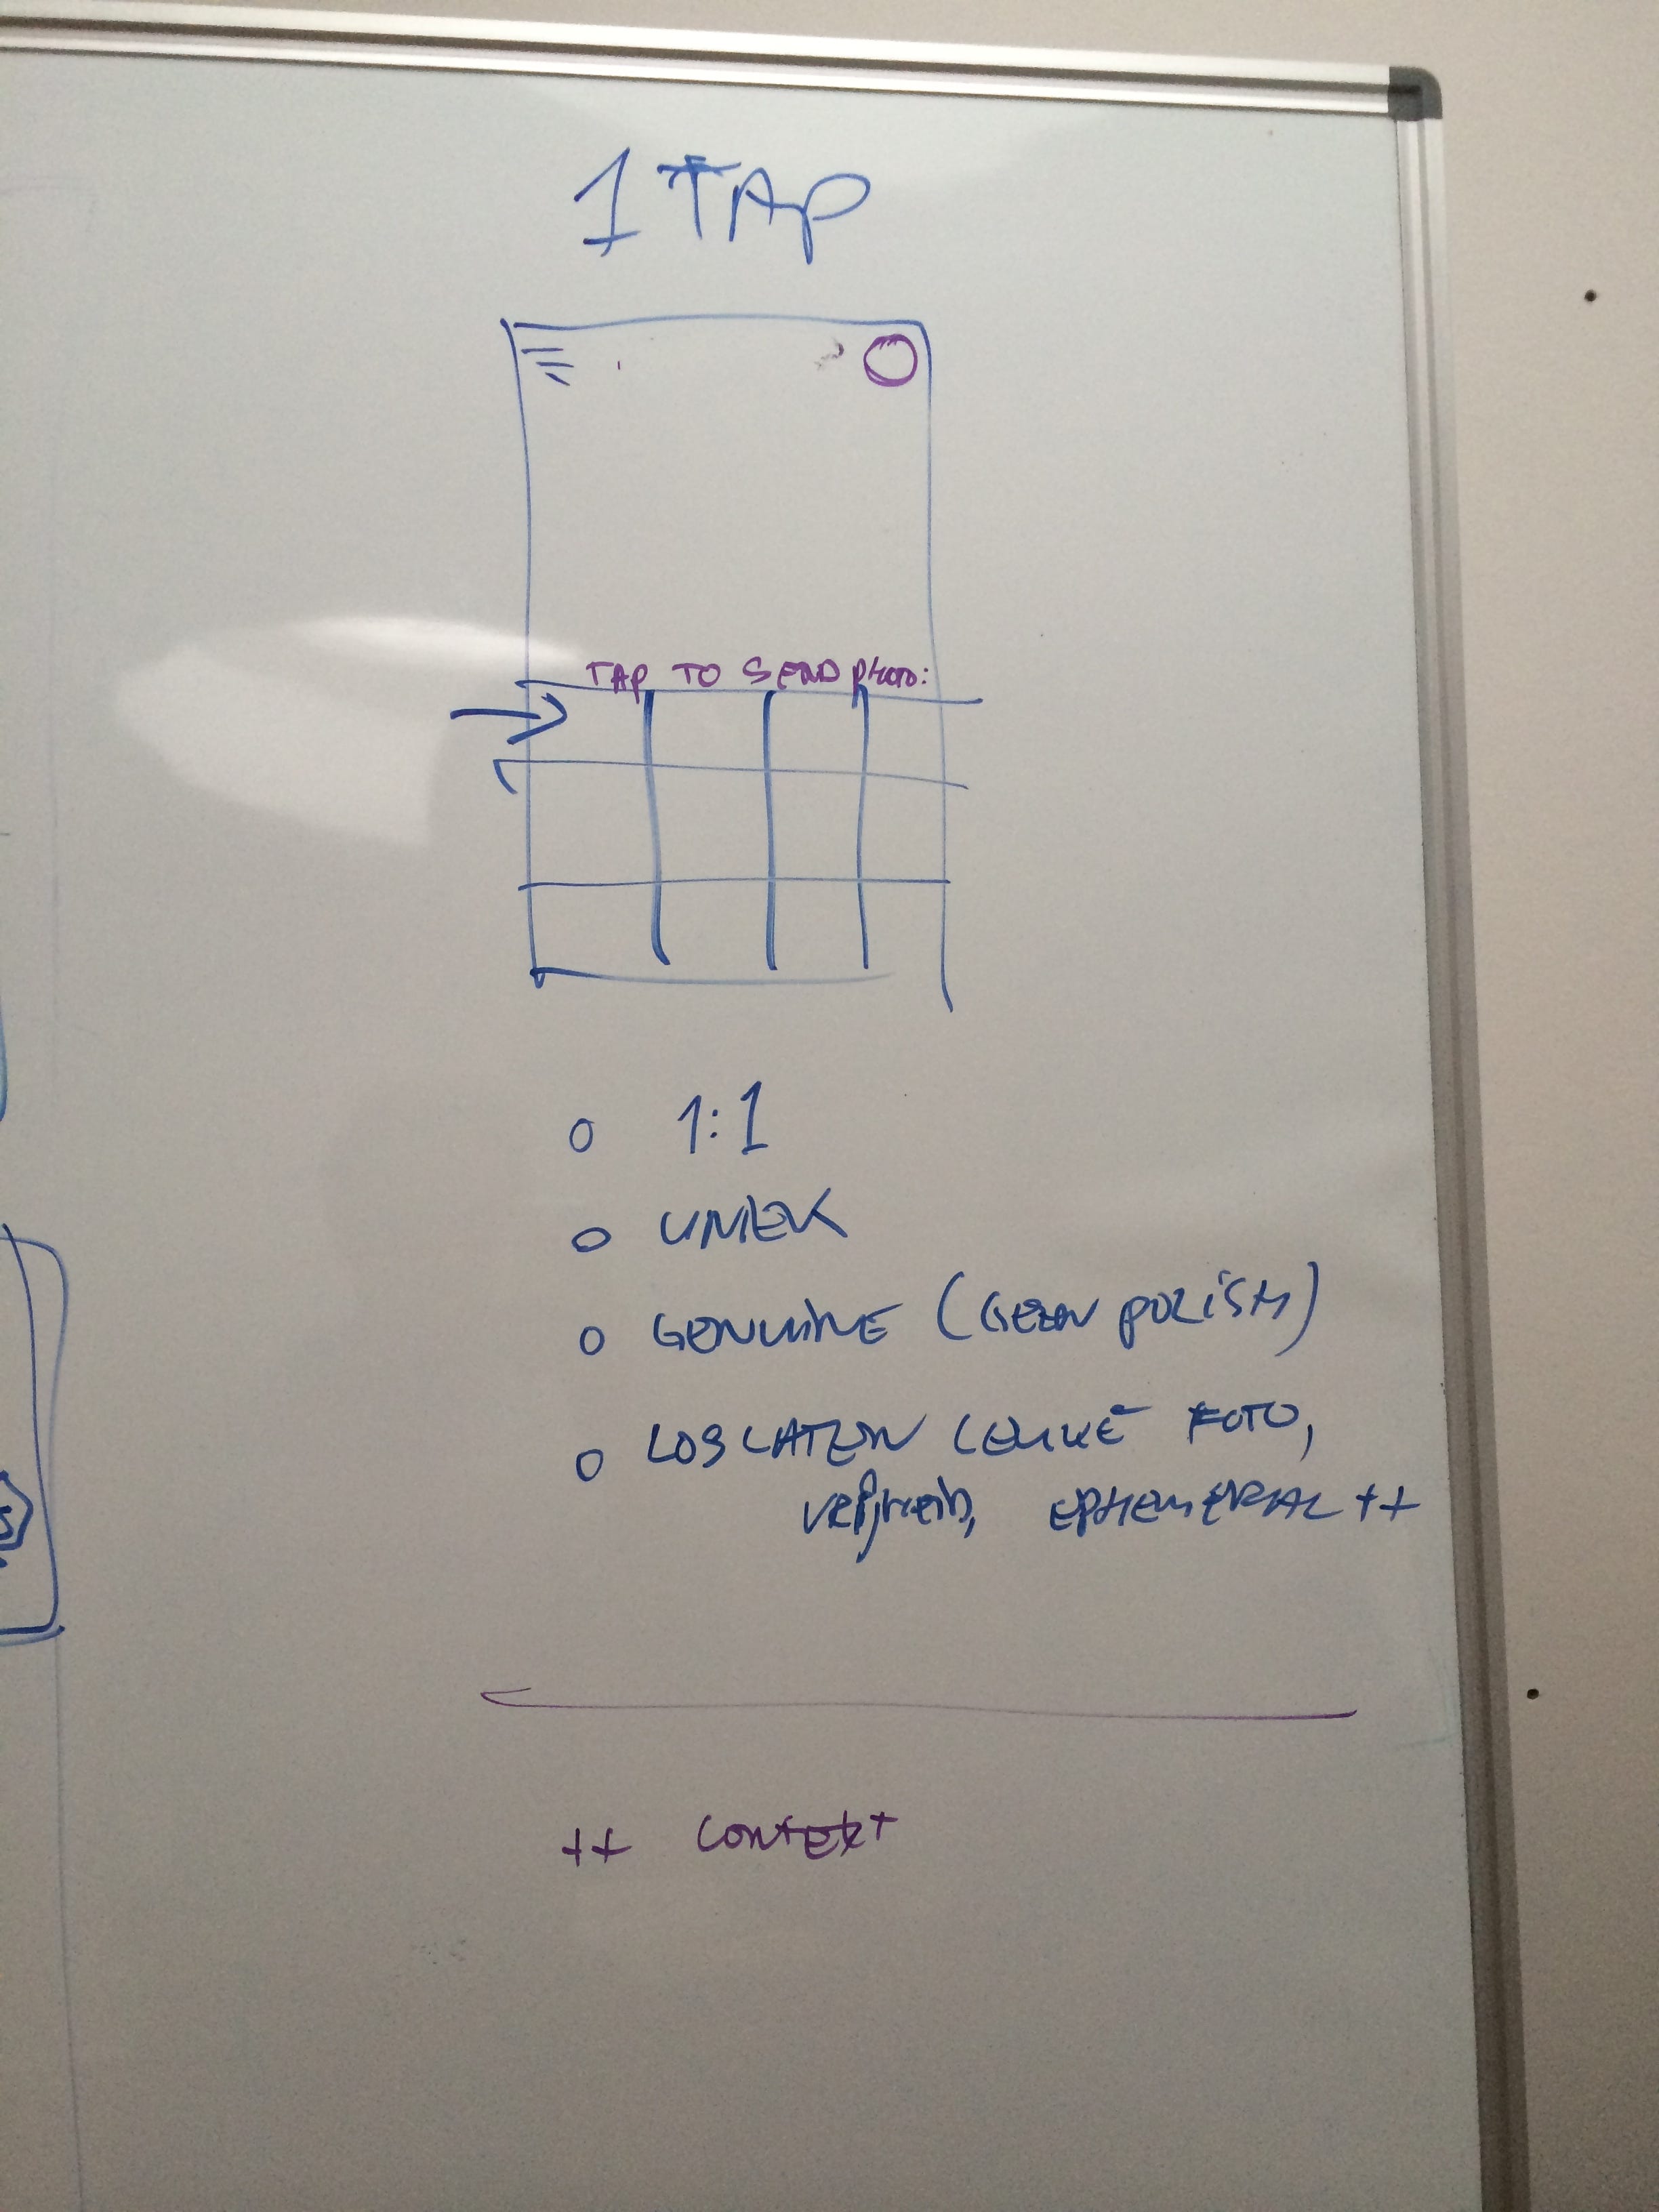 1 TAP
TAP TO SEND PHOTO:
o 1:1
o UNIEK
o GENUINE (GEEN POLISH)
o LOSLATEN LEUKE FOTO,
VRIJHEID, EPHEMERAL ++
S
++ CONTEXT